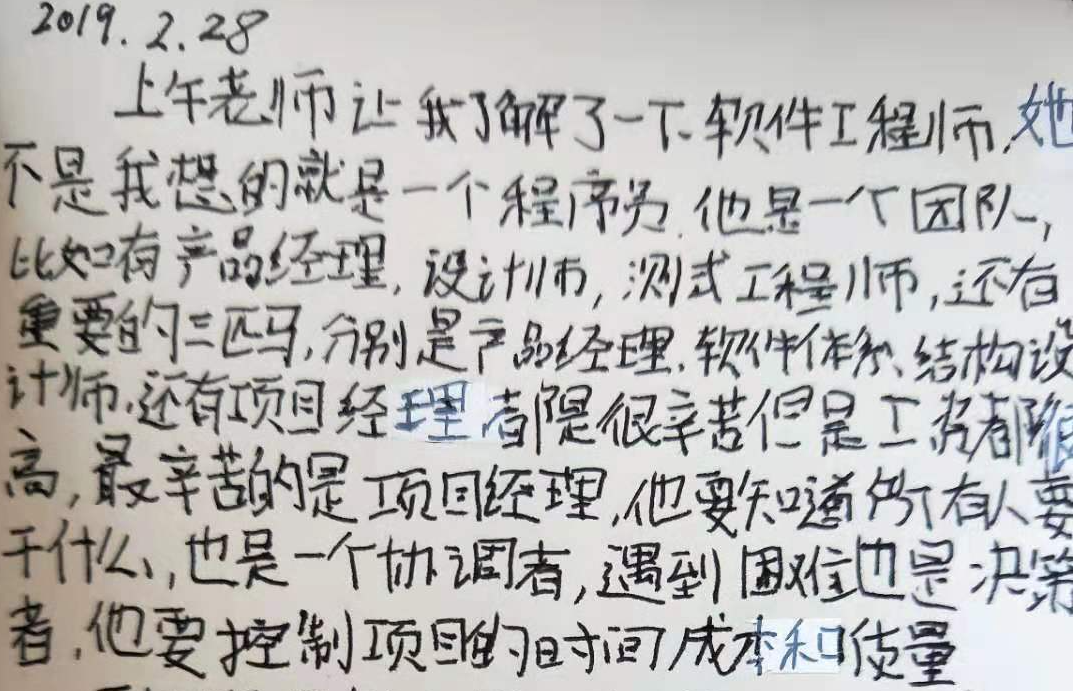 2019.2.28
上午老师让我了解了一下软件工程师,她
不是我想的就是一个程序员.他是一个团队,
比如有产品经理,设计师,测式工程师,还有
重要的三匹马,分别是产品经理.软件体系、结构设
计师.还有项目经理都是很辛苦但是工资都很
高,最辛苦的是项目经理,他要知道所有人要
干什么,也是一个协调者,遇到困难也是决策
者,他要控制项目的时间成本和质量